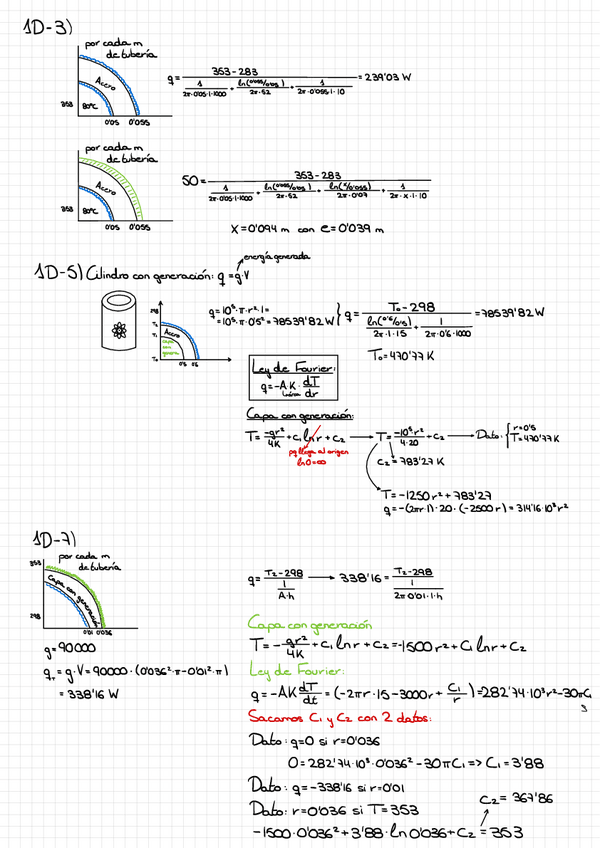 1D-3)
por cada m
de tubería
Acero
353
80°C
0'05 0'055
q = (353-283) / (1/(2π·0'05·1·1000) + ln(0'055/0'05)/(2π·52) + 1/(2π·0'055·1·10)) = 239'03 W
por cada m
de tubería
Acero
353
80°C
0'05 0'055
50 = (353-283) / (1/(2π·0'05·1·1000) + ln(0'055/0'05)/(2π·52) + ln(x/0'055)/(2π·0'07) + 1/(2π·x·1·10))
x = 0'094 m con e = 0'039 m
energía generada
1D-5) Cilindro con generación: q = g·V
Acero
capa
con
genera.
0'5 0'6
q = 10⁵·π·r²·1 =
= 10⁵·π·0'5² = 78539'82 W
q = (T₀-298) / (ln(0'6/0'5)/(2π·1·15) + 1/(2π·0'6·1000)) = 78539'82 W
T₀ = 470'77 K
Ley de Fourier:
q = -A·K·dT/dr
Capa con generación:
T = -gr²/4K + C₁ lnr + C₂ → T = -10⁵r²/(4·20) + C₂ → Dato: { r=0'5
T=470'77 K
pq llega al origen
ln0=∞
C₂ = 783'27 K
T = -1250 r² + 783'27
q = -(2πr·1)·20·(-2500r) = 314'16·10³r²
1D-7)
por cada m
de tubería
353
Capa con generación
298
0'01 0'036
g = 90000
qᵥ = g·V = 90000·(0'036²·π-0'01²·π)
= 338'16 W
q = (T₂-298) / (1/(A·h)) → 338'16 = (T₂-298) / (1/(2π·0'01·1·h))
Capa con generación
T = -gr²/4K + C₁ lnr + C₂ = -1500r² + C₁ lnr + C₂
Ley de Fourier:
q = -AK dT/dt = (-2πr·15·-3000r + C₁/r) = 282'74·10³r² - 30πC₁
Sacamos C₁ y C₂ con 2 datos:
Dato: q=0 si r=0'036
0 = 282'74·10³·0'036² - 30πC₁ => C₁ = 3'88
Dato: q = -338'16 si r=0'01
Dato: r=0'036 si T=353
C₂ = 367'86
-1500·0'036² + 3'88·ln0'036 + C₂ = 353